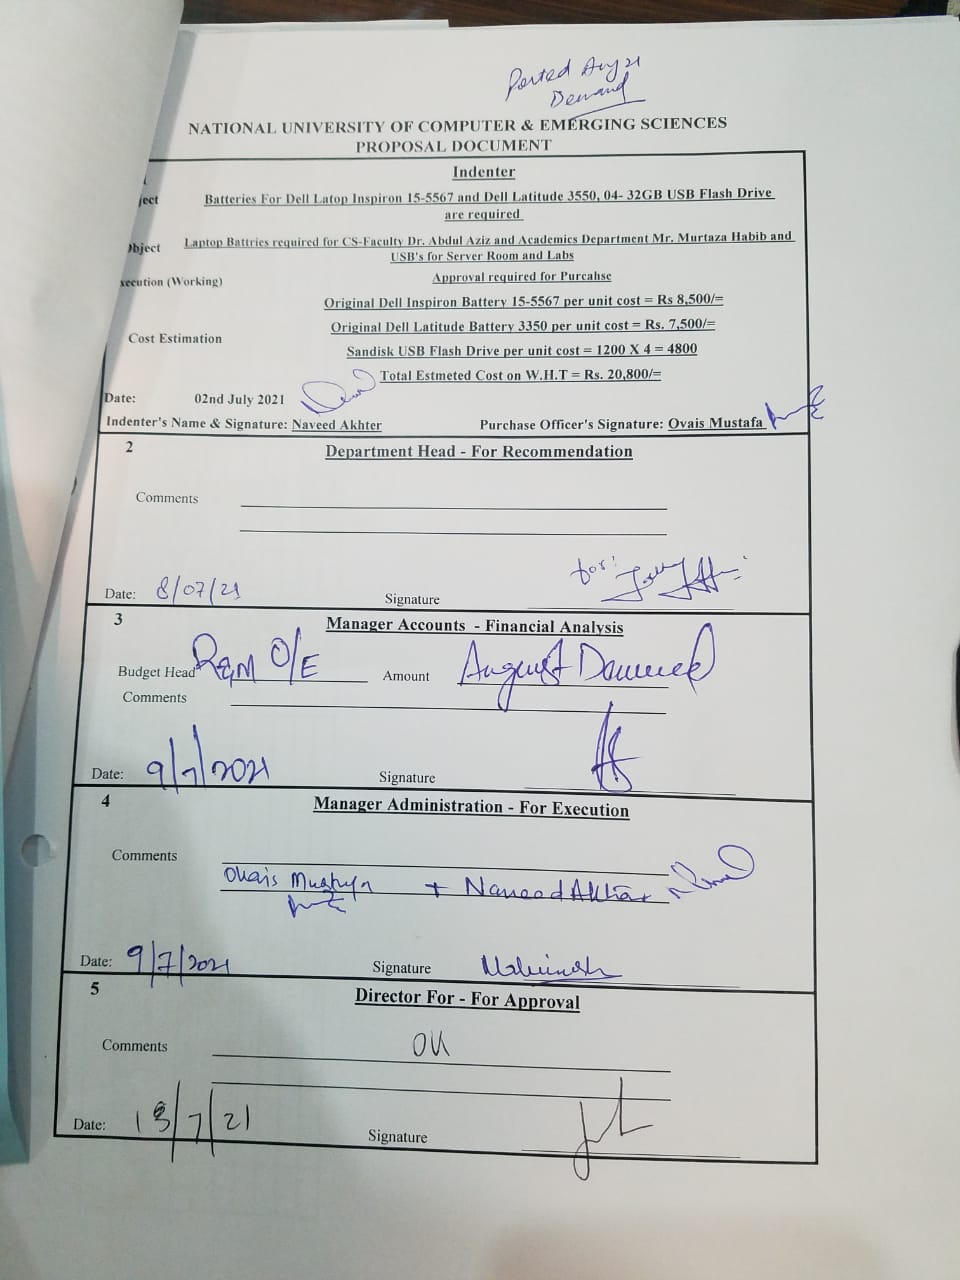 Posted Aug 21
Demand
NATIONAL UNIVERSITY OF COMPUTER & EMERGING SCIENCES
PROPOSAL DOCUMENT
Indenter
ject Batteries For Dell Latop Inspiron 15-5567 and Dell Latitude 3550, 04- 32GB USB Flash Drive
are required
Object Laptop Battries required for CS-Faculty Dr. Abdul Aziz and Academics Department Mr. Murtaza Habib and
USB's for Server Room and Labs
xecution (Working) Approval required for Purcahse
Original Dell Inspiron Battery 15-5567 per unit cost = Rs 8,500/=
Original Dell Latitude Battery 3350 per unit cost = Rs. 7,500/=
Cost Estimation
Sandisk USB Flash Drive per unit cost = 1200 X 4 = 4800
Total Estmeted Cost on W.H.T = Rs. 20,800/=
Date: 02nd July 2021
Indenter's Name & Signature: Naveed Akhter Purchase Officer's Signature: Ovais Mustafa
2 Department Head - For Recommendation
Comments
for:
Date: 8/07/21 Signature
3 Manager Accounts - Financial Analysis
Budget Head R&M O/E Amount August Demand
Comments
Date: 9/7/2021 Signature
4 Manager Administration - For Execution
Comments
Ovais Mustafa + Naveed Akhtar
Date: 9/7/2021 Signature
5 Director For - For Approval
Comments OK
Date: 13/7/21 Signature